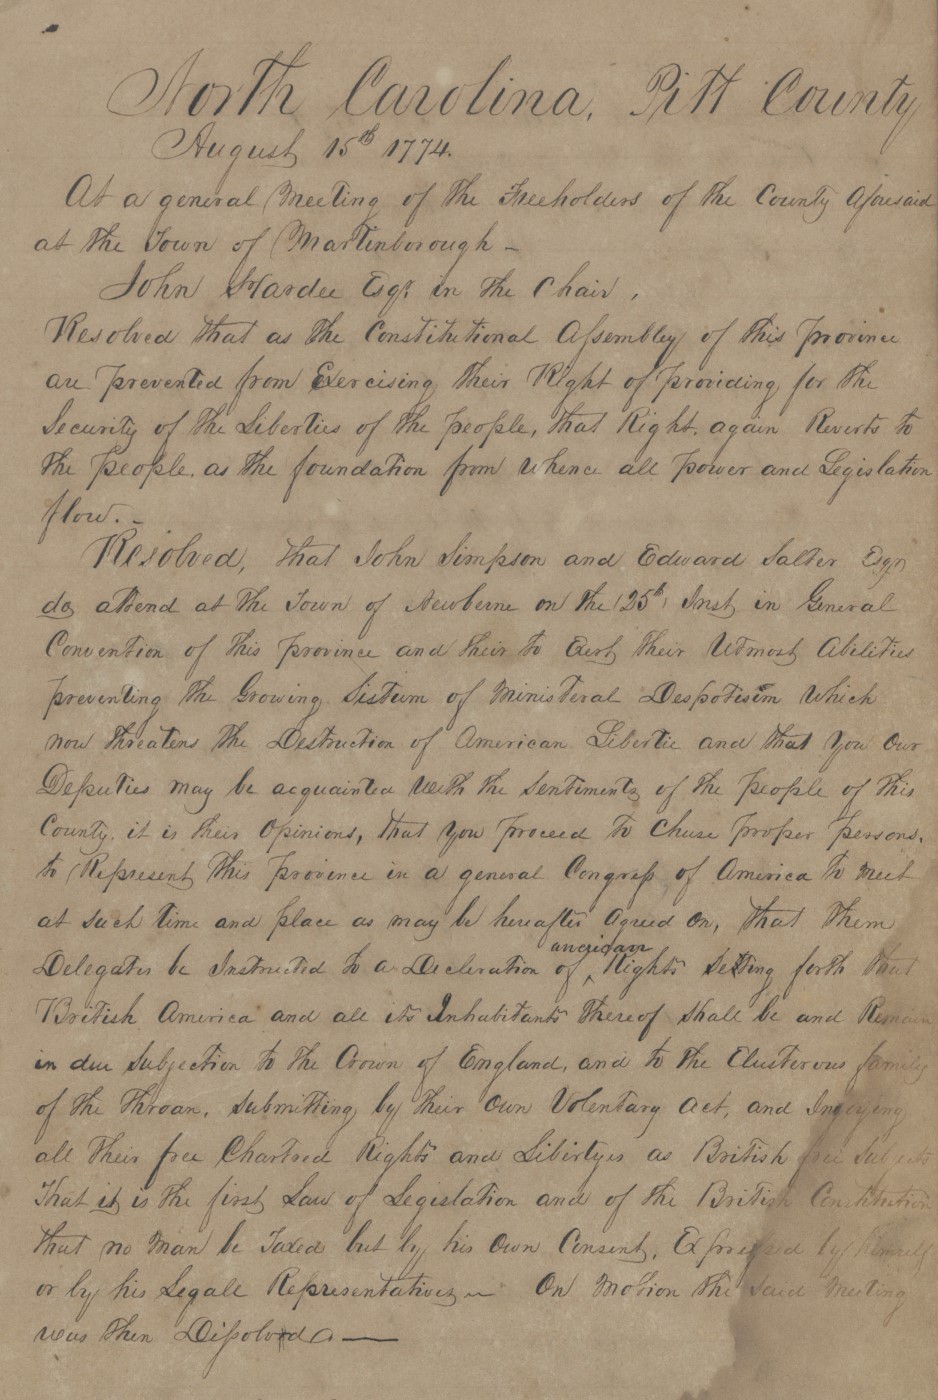 North Carolina, Pitt County
August 15th 1774.
At a general Meeting of the Freeholders of the County Aforesaid
at the Town of Martinborough -
John Hardee Esqr. in the Chair,
Resolved that as the Constitutional Assembley of this province
are prevented from Exercising their Right of providing for the
Security of the Liberties of the people, that Right again Reverts to
the people as the foundation from whence all power and Legislation
flow. -
Resolved, that John Simpson and Edward Salter Esqrs
do attend at the Town of Newberne on the 25th Inst in General
Convention of this province and their to Exert their Utmost Abilities
preventing the Growing Sistium of Ministeral Despotisim which
now threatens the Destruction of American Libertie and that you our
Deputies may be acquainted with the Sentiments of the people of this
County. it is their Opinions, that you proceed to Chuse proper persons.
to Represent this province in a general Congress of America to meet
at such time and place as may be hereafter Agreed on, that them
american
Delegates be Instructed to a Decleration of ^ Rights Setting forth that
British America and all its Inhabitants thereof Shall be and Remain
in due Subjection to the Crown of England, and to the Elusterous family
of the Throan, Submitting by their Own Volentary Act, and Injoying
all their free Chartred Rights and Libirtyes as British free Subjects
That it is the first Law of Legislation and of the British Constitution
that no Man be Taxed but by his Own Consent, Expressed by himself
or by his Legale Representatives — On Motion the Said Meeting
was then Dissolved —